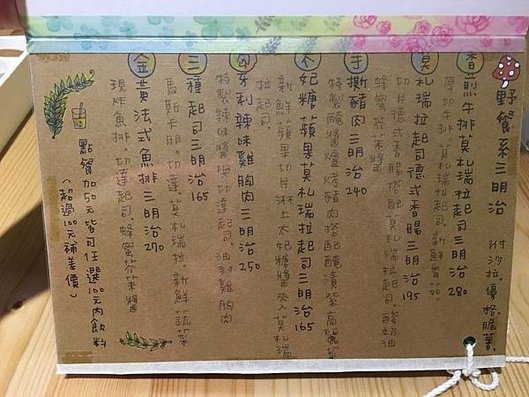 野餐系三明治 附沙拉.優格.脆薯
香煎牛排莫札瑞拉起司三明治 280
厚切牛排.莫札瑞拉起司
莫札瑞拉起司德式香腸三明治 195
切片德式香腸搭配莫札瑞拉起司.酸奶油
蜂蜜芥末醬
手撕豬肉三明治 240
特製醃醬爐烤豬肉搭配醃漬紫高麗菜
不妃糖蘋果莫札瑞拉起司三明治 165
新鮮蘋果切片淋上太妃糖醬夾入莫札瑞
拉起司
匈牙利辣味雞胸肉三明治 250
特製辣味醬.切達起司.油封雞胸肉
三種起司三明治 165
馬斯卡朋.切達.莫札瑞拉.新鮮蔬菜
金黃法式魚排三明治 270
現炸魚排.切達起司.蜂蜜芥末醬
點餐加50元皆可任選100元內飲料
(超過100元補差價)